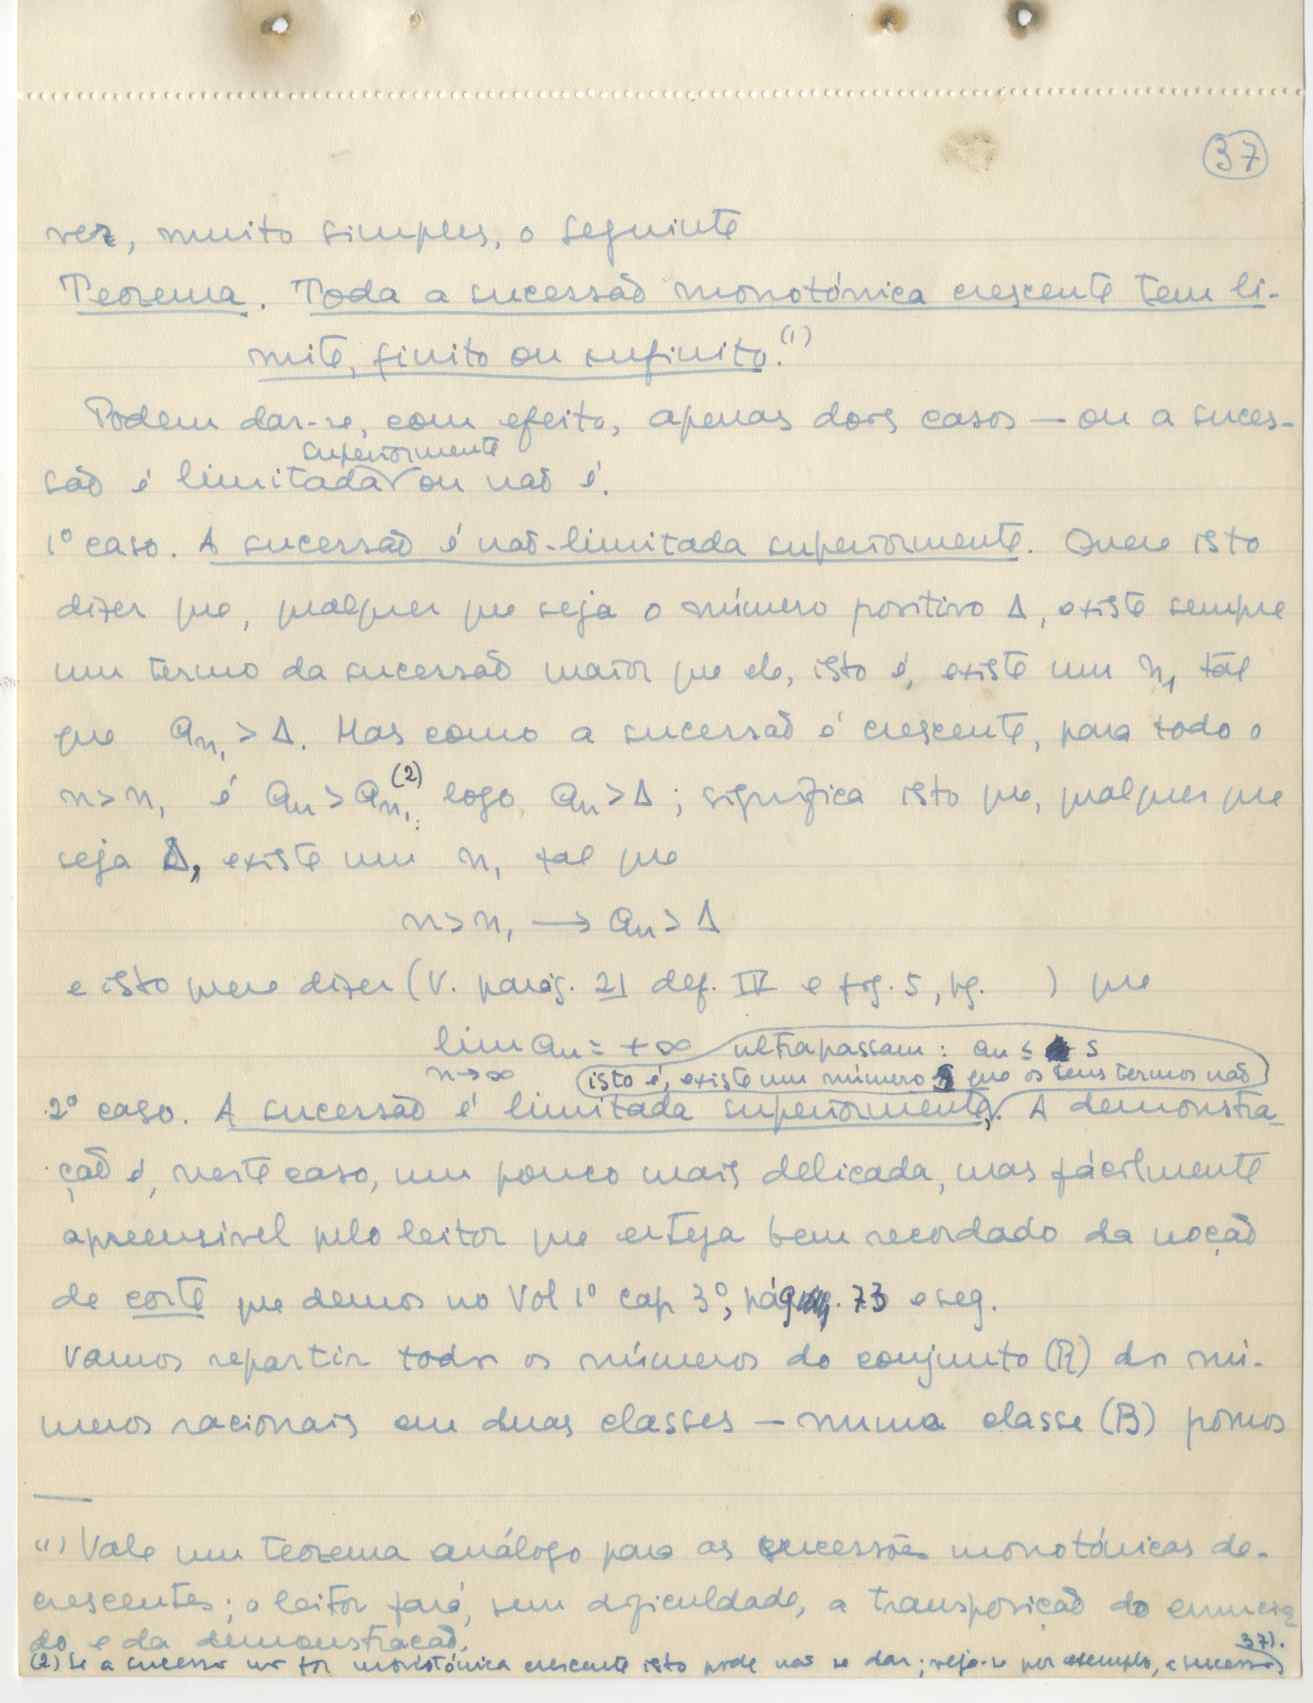 37
vez, muito simples, o seguinte
Teorema. Toda a sucessão monotónica crescente tem li-
mite, finito ou infinito.(1)
Podem dar-se, com efeito, apenas dois casos — ou a suces-
superiormente
são é limitada ou não é.
1º caso. A sucessão é não-limitada superiormente. Quere isto
dizer que, qualquer que seja o número positivo Δ, existe sempre
um termo da sucessão maior que ele, isto é, existe um n₁ tal
que aₙ₁ > Δ. Mas como a sucessão é crescente, para todo o
n > n₁ é aₙ > aₙ₁(2) logo aₙ > Δ; significa isto que, qualquer que
seja Δ, existe um n₁ tal que
n > n₁ → aₙ > Δ
e isto quere dizer (V. parág. 21 def. IV e fig. 5, pg. ) que
lim aₙ = +∞ ultrapassam: aₙ ≤ S
n→∞ isto é, existe um número S que os seus termos não
2º caso. A sucessão é limitada superiormente,. A demonstra-
ção é, neste caso, um pouco mais delicada, mas fácilmente
apreensivel pelo leitor que esteja bem recordado da noção
de corte que demos no Vol 1º cap 3º, pág. 73 e seg.
Vamos repartir todos os números do conjunto (R) dos nú-
meros racionais em duas classes — numa classe (B) pomos
(1) Vale um teorema análogo para as sucessões monotónicas de-
crescentes; o leitor fará, sem dificuldade, a transposição do enuncia
do e da demonstração.
(2) Se a sucessão não for monotónica crescente isto pode não se dar; veja-se por exemplo, a sucessão
37).